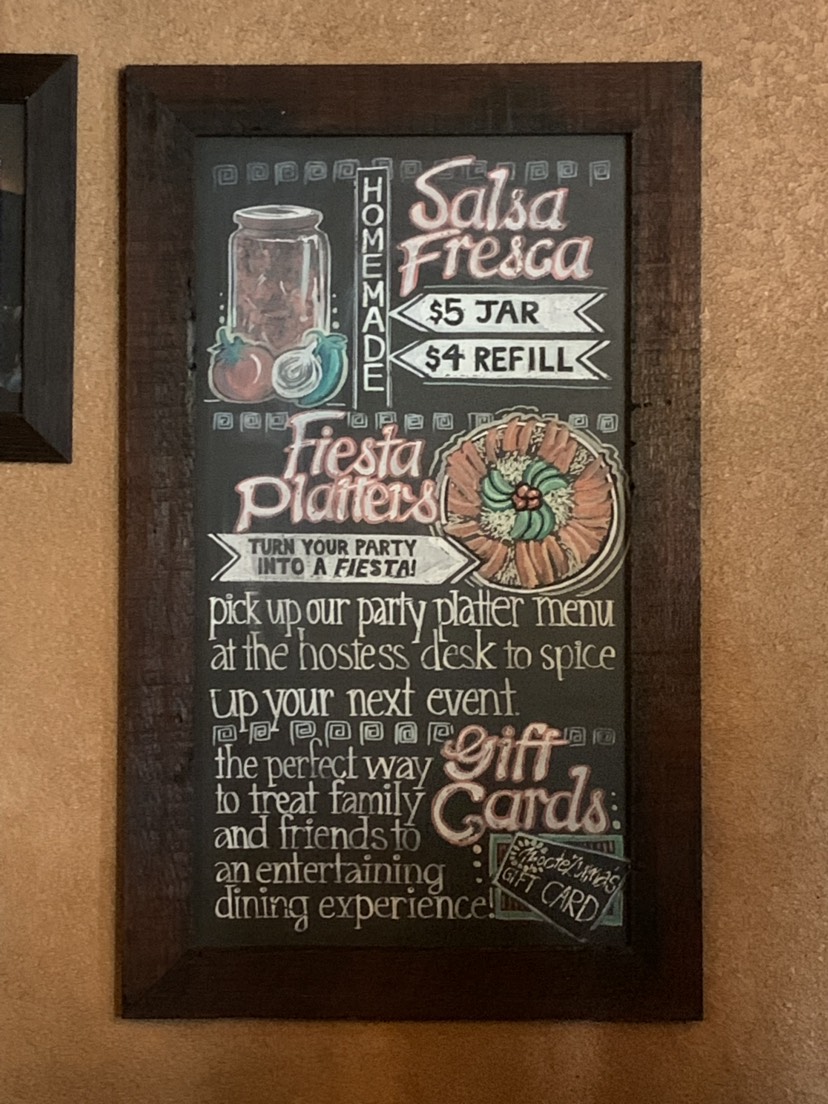 HOMEMADE
Salsa
Fresca
$5 JAR
$4 REFILL
Fiesta
Platters
TURN YOUR PARTY
INTO A FIESTA!
pick up our party platter menu
at the hostess desk to spice
up your next event.
Gift
Cards
the perfect way
to treat family
and friends to
an entertaining
dining experience!
Moctezuma's
GIFT CARD